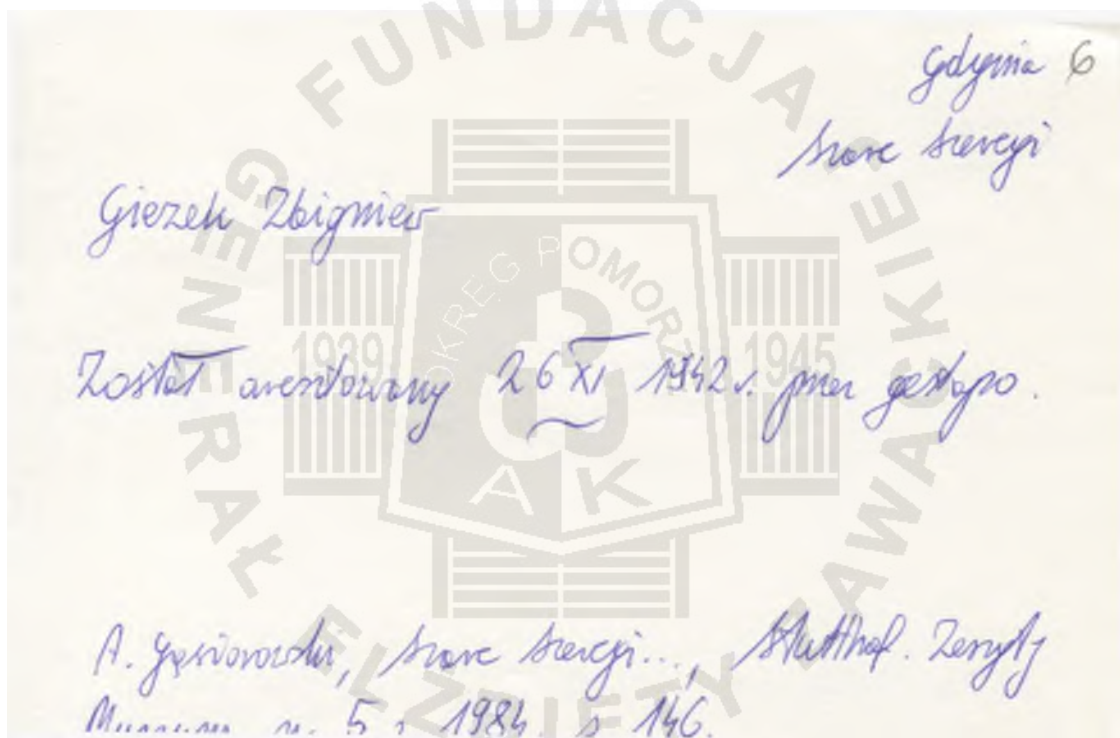 Gdynia 6
Szare Szeregi
Giezek Zbigniew
Został aresztowany 26 XI 1942 r. przez gestapo.
A. Gąsiorowski, Szare Szeregi..., Stutthof. Zeszyty
Muzeum nr 5 z 1984 s 146.
FUNDACJA GENERAŁ ELŻBIETY ZAWACKIEJ
OKRĘG POMORZE
1939 1945
AK